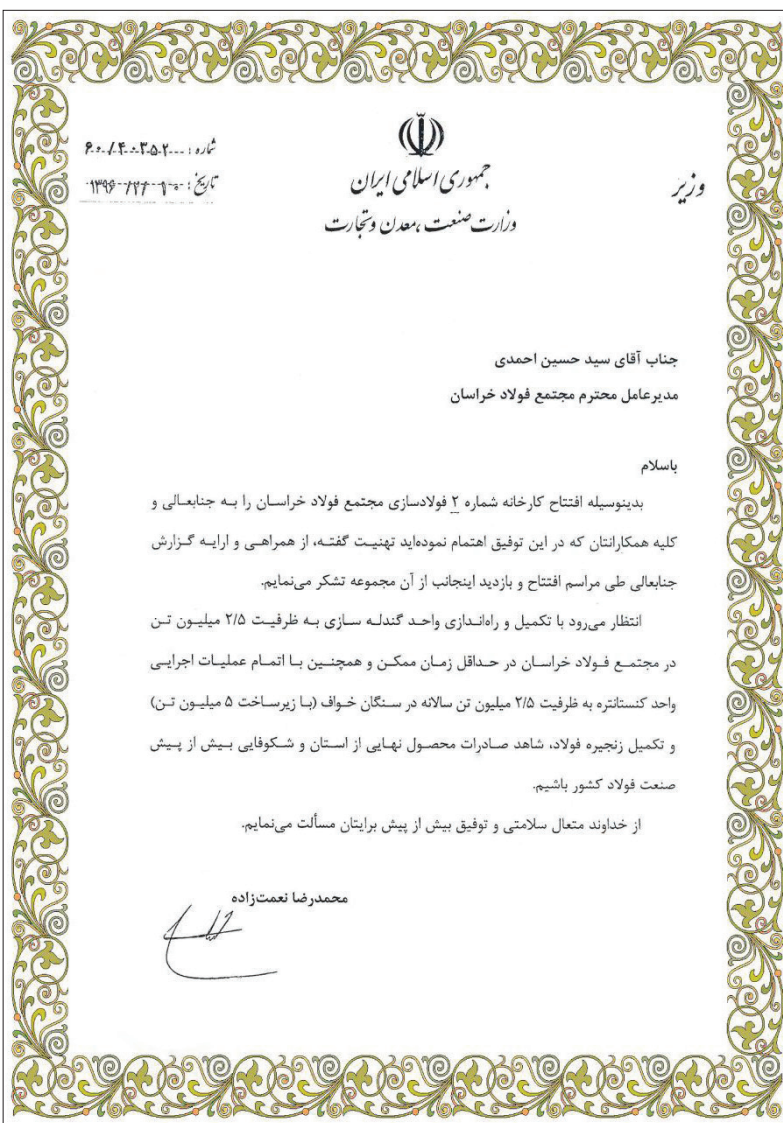 شماره : ۶۰/۴۰۳۵۲
تاریخ :
جمهوری اسلامی ایران
وزارت صنعت ،معدن وتجارت
وزیر
جناب آقای سید حسین احمدی
مدیرعامل محترم مجتمع فولاد خراسان
باسلام
بدینوسیله افتتاح کارخانه شماره ۲ فولادسازی مجتمع فولاد خراسان را به جنابعالی و
کلیه همکارانتان که در این توفیق اهتمام نموده‌اید تهنیت گفته، از همراهی و ارایه گزارش
جنابعالی طی مراسم افتتاح و بازدید اینجانب از آن مجموعه تشکر می‌نمایم.
انتظار می‌رود با تکمیل و راه‌اندازی واحد گندله سازی به ظرفیت ۲/۵ میلیون تن
در مجتمع فولاد خراسان در حداقل زمان ممکن و همچنین با اتمام عملیات اجرایی
واحد کنستانتره به ظرفیت ۲/۵ میلیون تن سالانه در سنگان خواف (با زیرساخت ۵ میلیون تن)
و تکمیل زنجیره فولاد، شاهد صادرات محصول نهایی از استان و شکوفایی بیش از پیش
صنعت فولاد کشور باشیم.
از خداوند متعال سلامتی و توفیق بیش از پیش برایتان مسألت می‌نمایم.
محمدرضا نعمت‌زاده